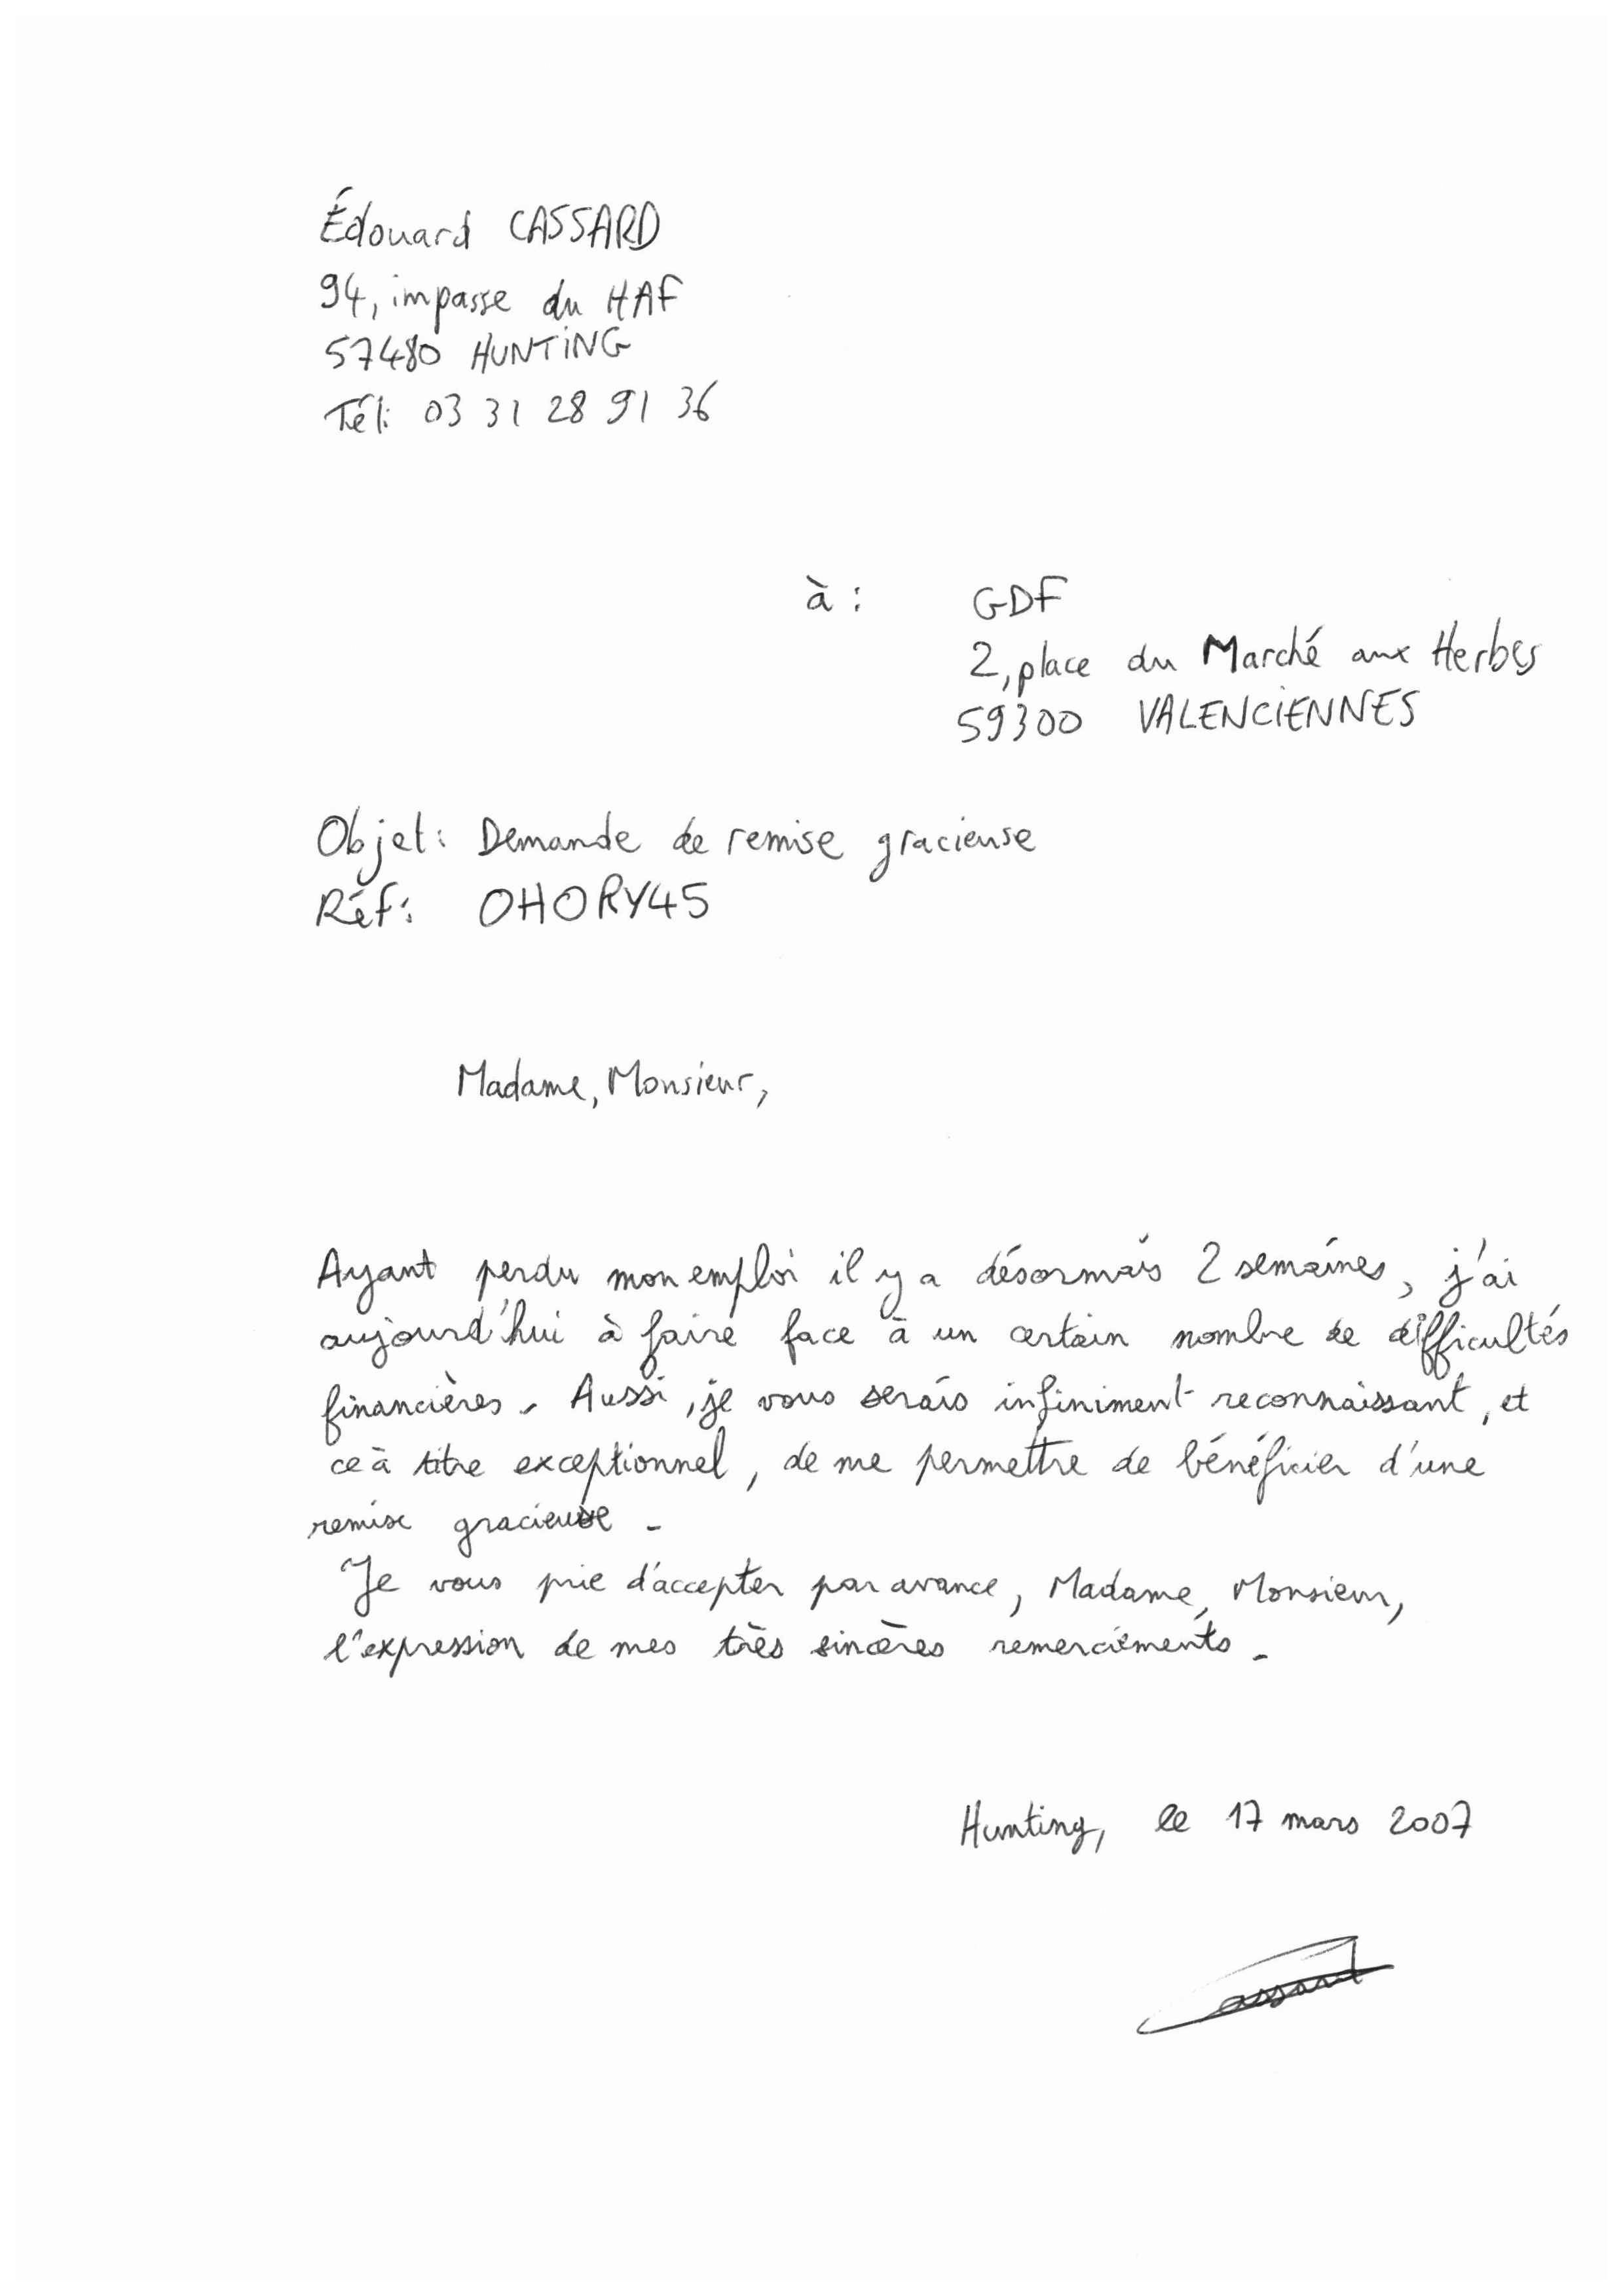 Édouard CASSARD
94, impasse du HAF
57480 HUNTING
Tél: 03 31 28 91 36
à : GDF
2, place du Marché aux Herbes
59300 VALENCIENNES
Objet: Demande de remise gracieuse
Réf: OHORY45
Madame, Monsieur,
Ayant perdu mon emploi il y a désormais 2 semaines, j'ai
aujourd'hui à faire face à un certain nombre de difficultés
financières. Aussi, je vous serais infiniment reconnaissant, et
ce à titre exceptionnel, de me permettre de bénéficier d'une
remise gracieuse.
Je vous prie d'accepter par avance, Madame, Monsieur,
l'expression de mes très sincères remerciements.
Hunting, le 17 mars 2007
Cassard